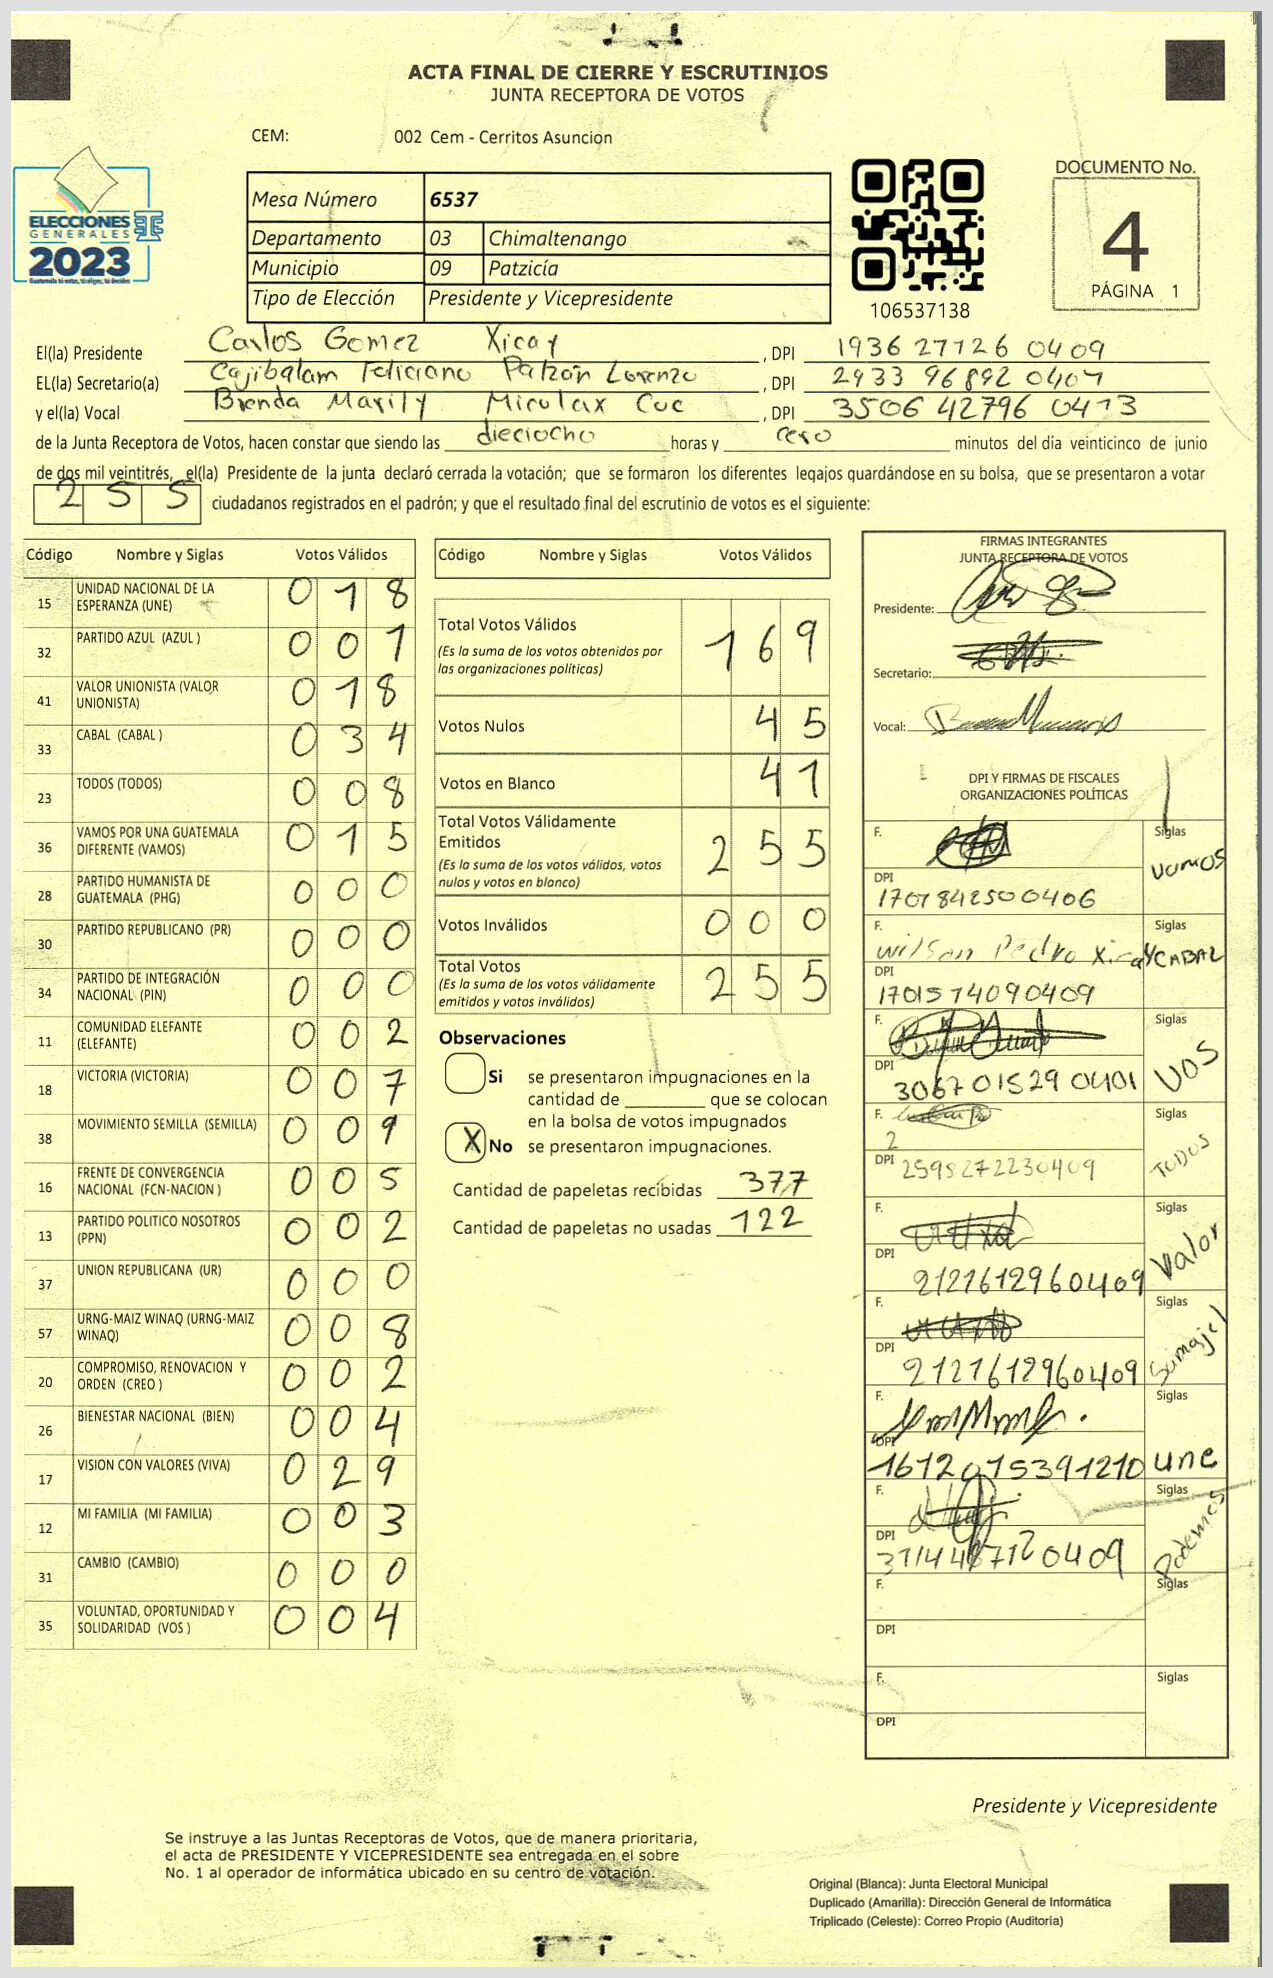 ACTA FINAL DE CIERRE Y ESCRUTINIOS
JUNTA RECEPTORA DE VOTOS
CEM: 002 Cem - Cerritos Asuncion
ELECCIONES
GENERALES
2023
Mesa Número 6537
Departamento 03 Chimaltenango
Municipio 09 Patzicía
Tipo de Elección Presidente y Vicepresidente
106537138
DOCUMENTO No.
4
PÁGINA 1
El(la) Presidente Carlos Gomez Xicay , DPI 1936 27126 0409
EL(la) Secretario(a) Cajibalam Feliciano Patzán Lorenzo , DPI 2933 96892 0407
y el(la) Vocal Brenda Marily Miculax Cuc , DPI 3506 42796 0413
de la Junta Receptora de Votos, hacen constar que siendo las dieciocho horas y cero minutos del día veinticinco de junio
de dos mil veintitrés, el(la) Presidente de la junta declaró cerrada la votación; que se formaron los diferentes legajos guardándose en su bolsa, que se presentaron a votar
255 ciudadanos registrados en el padrón; y que el resultado final del escrutinio de votos es el siguiente:
Código Nombre y Siglas Votos Válidos
15 UNIDAD NACIONAL DE LA ESPERANZA (UNE) 018
32 PARTIDO AZUL (AZUL ) 001
41 VALOR UNIONISTA (VALOR UNIONISTA) 018
33 CABAL (CABAL ) 034
23 TODOS (TODOS) 008
36 VAMOS POR UNA GUATEMALA DIFERENTE (VAMOS) 015
28 PARTIDO HUMANISTA DE GUATEMALA (PHG) 000
30 PARTIDO REPUBLICANO (PR) 000
34 PARTIDO DE INTEGRACIÓN NACIONAL (PIN) 000
11 COMUNIDAD ELEFANTE (ELEFANTE) 002
18 VICTORIA (VICTORIA) 007
38 MOVIMIENTO SEMILLA (SEMILLA) 009
16 FRENTE DE CONVERGENCIA NACIONAL (FCN-NACION ) 005
13 PARTIDO POLITICO NOSOTROS (PPN) 002
37 UNION REPUBLICANA (UR) 000
57 URNG-MAIZ WINAQ (URNG-MAIZ WINAQ) 008
20 COMPROMISO, RENOVACION Y ORDEN (CREO ) 002
26 BIENESTAR NACIONAL (BIEN) 004
17 VISION CON VALORES (VIVA) 029
12 MI FAMILIA (MI FAMILIA) 003
31 CAMBIO (CAMBIO) 000
35 VOLUNTAD, OPORTUNIDAD Y SOLIDARIDAD (VOS ) 004
Código Nombre y Siglas Votos Válidos
Total Votos Válidos 169
(Es la suma de los votos obtenidos por las organizaciones políticas)
Votos Nulos 45
Votos en Blanco 41
Total Votos Válidamente Emitidos 255
(Es la suma de los votos válidos, votos nulos y votos en blanco)
Votos Inválidos 000
Total Votos 255
(Es la suma de los votos válidamente emitidos y votos inválidos)
Observaciones
Si se presentaron impugnaciones en la
cantidad de ________ que se colocan
en la bolsa de votos impugnados
X No se presentaron impugnaciones.
Cantidad de papeletas recibidas 377
Cantidad de papeletas no usadas 122
FIRMAS INTEGRANTES
JUNTA RECEPTORA DE VOTOS
Presidente:
Secretario:
Vocal:
DPI Y FIRMAS DE FISCALES
ORGANIZACIONES POLÍTICAS
F. Siglas Vamos
DPI 1701842500406
F. Wilson Pedro Xicay Siglas CABAL
DPI 1701574090409
F. Siglas VOS
DPI 3067015290401
F. Siglas TODOS
2
DPI 2598272230409
F. Siglas Valor
DPI 2121612960409
F. Siglas
DPI 2121612960409
Siglas une
DPI 1612015391210
F. Siglas Podemos
DPI 3114487120409
F. Siglas
DPI
F. Siglas
DPI
Presidente y Vicepresidente
Se instruye a las Juntas Receptoras de Votos, que de manera prioritaria,
el acta de PRESIDENTE Y VICEPRESIDENTE sea entregada en el sobre
No. 1 al operador de informática ubicado en su centro de votación.
Original (Blanca): Junta Electoral Municipal
Duplicado (Amarilla): Dirección General de Informática
Triplicado (Celeste): Correo Propio (Auditoría)